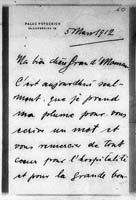 PALAZ POTOCKICH
5 Mars 1912
Ma bien chère Grand Maman
C'est aujourd'hui seul-
ment que je prend
ma plume pour vous
écrire un mot et
vous remercier de tout
coeur pour l'hospitalité
et pour la grande bon-